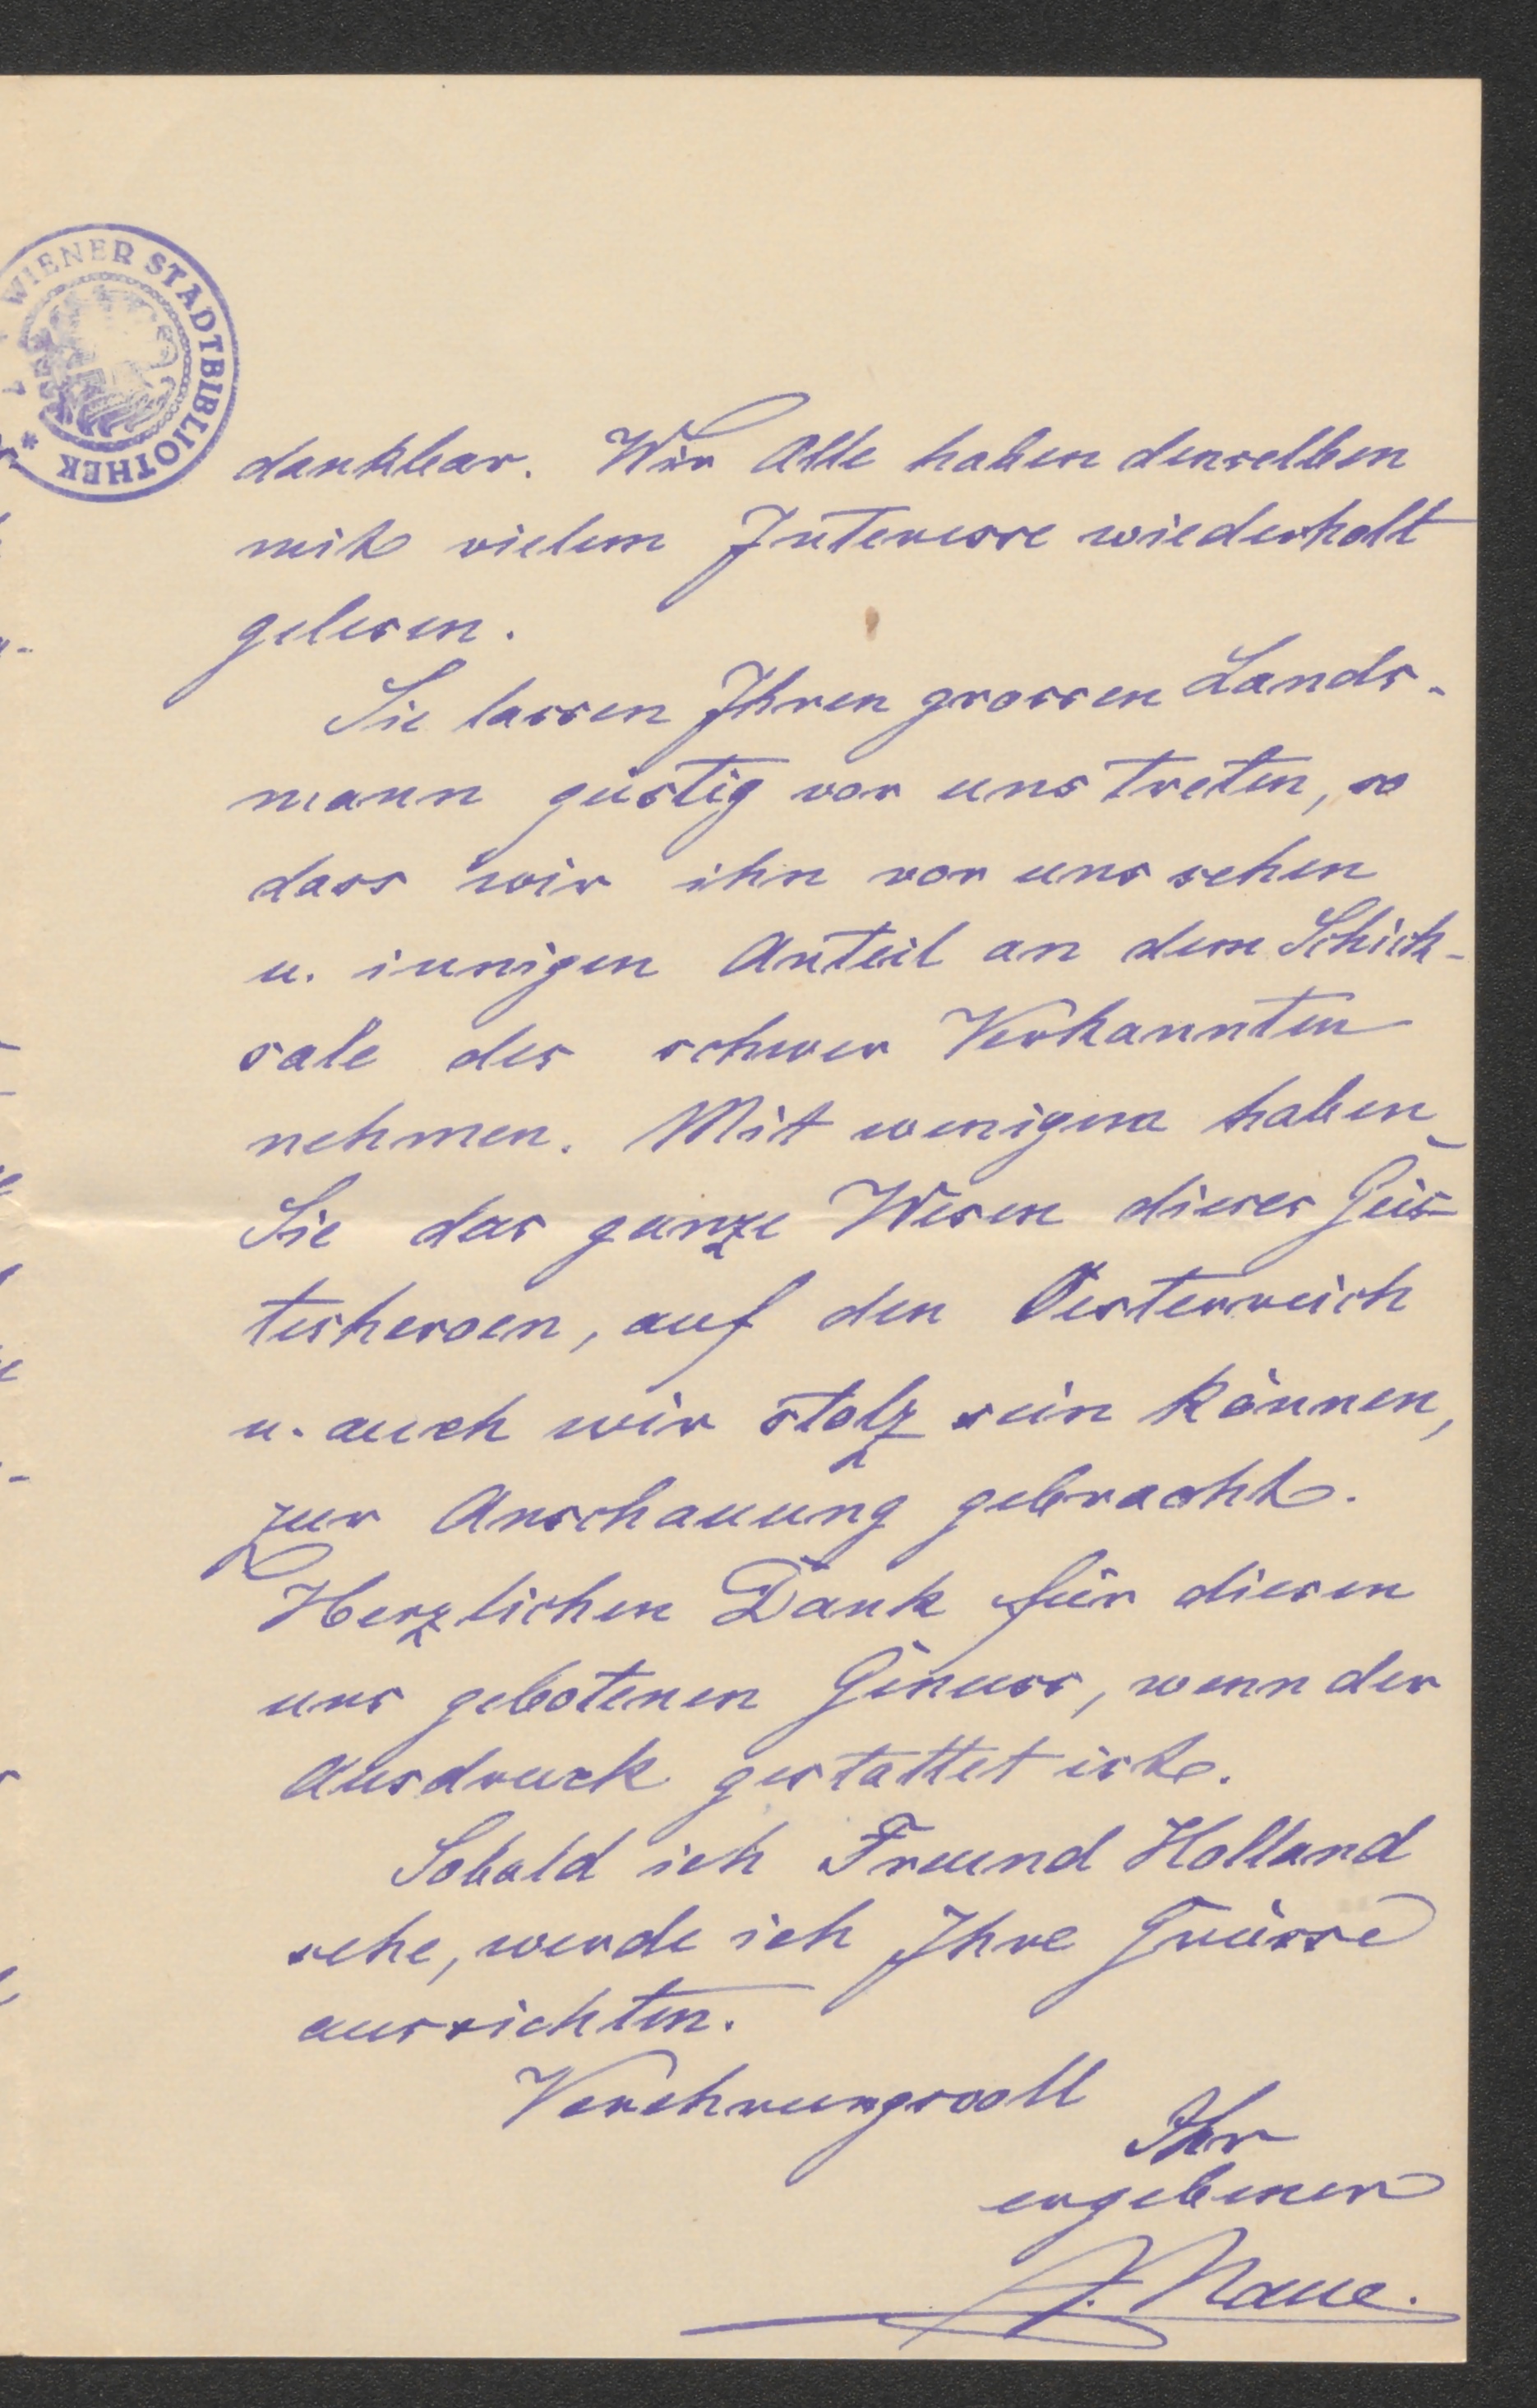 WIENER STADTBIBLIOTHEK
dankbar. Wir Alle haben denselben
mit vielem Interesse wiederholt
gelesen.
Sie lassen Ihren grossen Lands-
mann geistig vor uns treten, so
dass wir ihn vor uns sehen
u. innigen Anteil an dem Schick-
sale des schwer Verkannten
nehmen. Mit wenigem haben
Sie das ganze Wesen dieses Geis-
tesheroen, auf den Oesterreich
u. auch wir stolz sein können,
zur Anschauung gebracht.
Herzlichen Dank für diesen
uns gebotenen Genuss, wenn der
Ausdruck gestattet ist.
Sobald ich Freund Holland
sehe, werde ich Ihre Grüsse
ausrichten.
Verehrungsvoll
Ihr
ergebener
J. Naue.